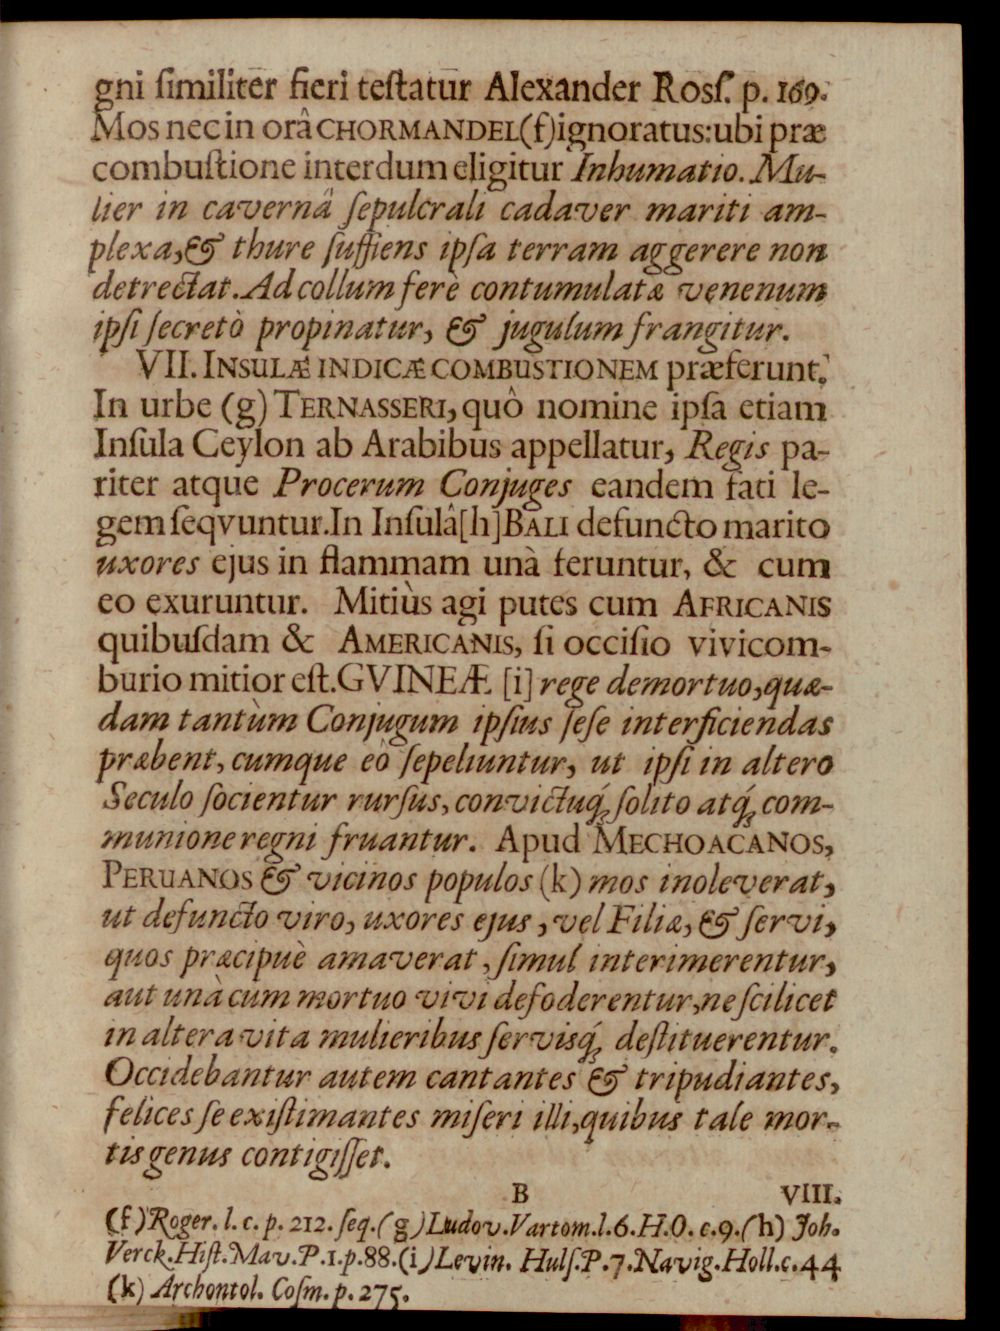 gni ſimiliter fieri teſtatur Alexander Roſſ. p. 169.
Mos nec in orâ CHORMANDEL (f) ignoratus: ubi præ
combuſtione interdum eligitur Inhumatio. Mu-
lier in cavernâ ſepulcrali cadaver mariti am-
plexa, & thure ſuffiens ipſa terram aggerere non
detrectat. Ad collum ferè contumulatæ venenum
ipſi ſecretò propinatur, & jugulum frangitur.
VII. INSULÆ INDICÆ COMBUSTIONEM præferunt.
In urbe (g) TERNASSERI, quô nomine ipſa etiam
Inſula Ceylon ab Arabibus appellatur, Regis pa-
riter atque Procerum Conjuges eandem fati le-
gem ſeqvuntur. In Inſulâ [h] BALI defuncto marito
uxores ejus in flammam unà feruntur, & cum
eo exuruntur. Mitiùs agi putes cum AFRICANIS
quibuſdam & AMERICANIS, ſi occiſio vivicom-
burio mitior eſt. GVINEÆ [i] rege demortuo, quæ-
dam tantùm Conjugum ipſius ſeſe interficiendas
præbent, cumque eô ſepeliuntur, ut ipſi in altero
Seculo ſocientur rurſus, convictuq́; ſolito atq́; com-
munione regni fruantur. Apud MECHOACANOS,
PERUANOS & vicinos populos (k) mos inoleverat,
ut defuncto viro, uxores ejus, vel Filiæ, & ſervi,
quos præcipuè amaverat, ſimul interimerentur,
aut unà cum mortuo vivi defoderentur, ne ſcilicet
in altera vita mulieribus ſervisq́; deſtituerentur.
Occidebantur autem cantantes & tripudiantes,
felices ſe exiſtimantes miſeri illi, quibus tale mor-
tis genus contigiſſet.
B VIII.
(f) Roger. l. c. p. 212. ſeq. (g) Ludov. Vartom. l. 6. H. O. c. 9. (h) Joh.
Verck. Hiſt. Mav. P. 1. p. 88. (i) Levin. Hulſ. P. 7. Navig. Holl. c. 44
(k) Archontol. Coſm. p. 275.